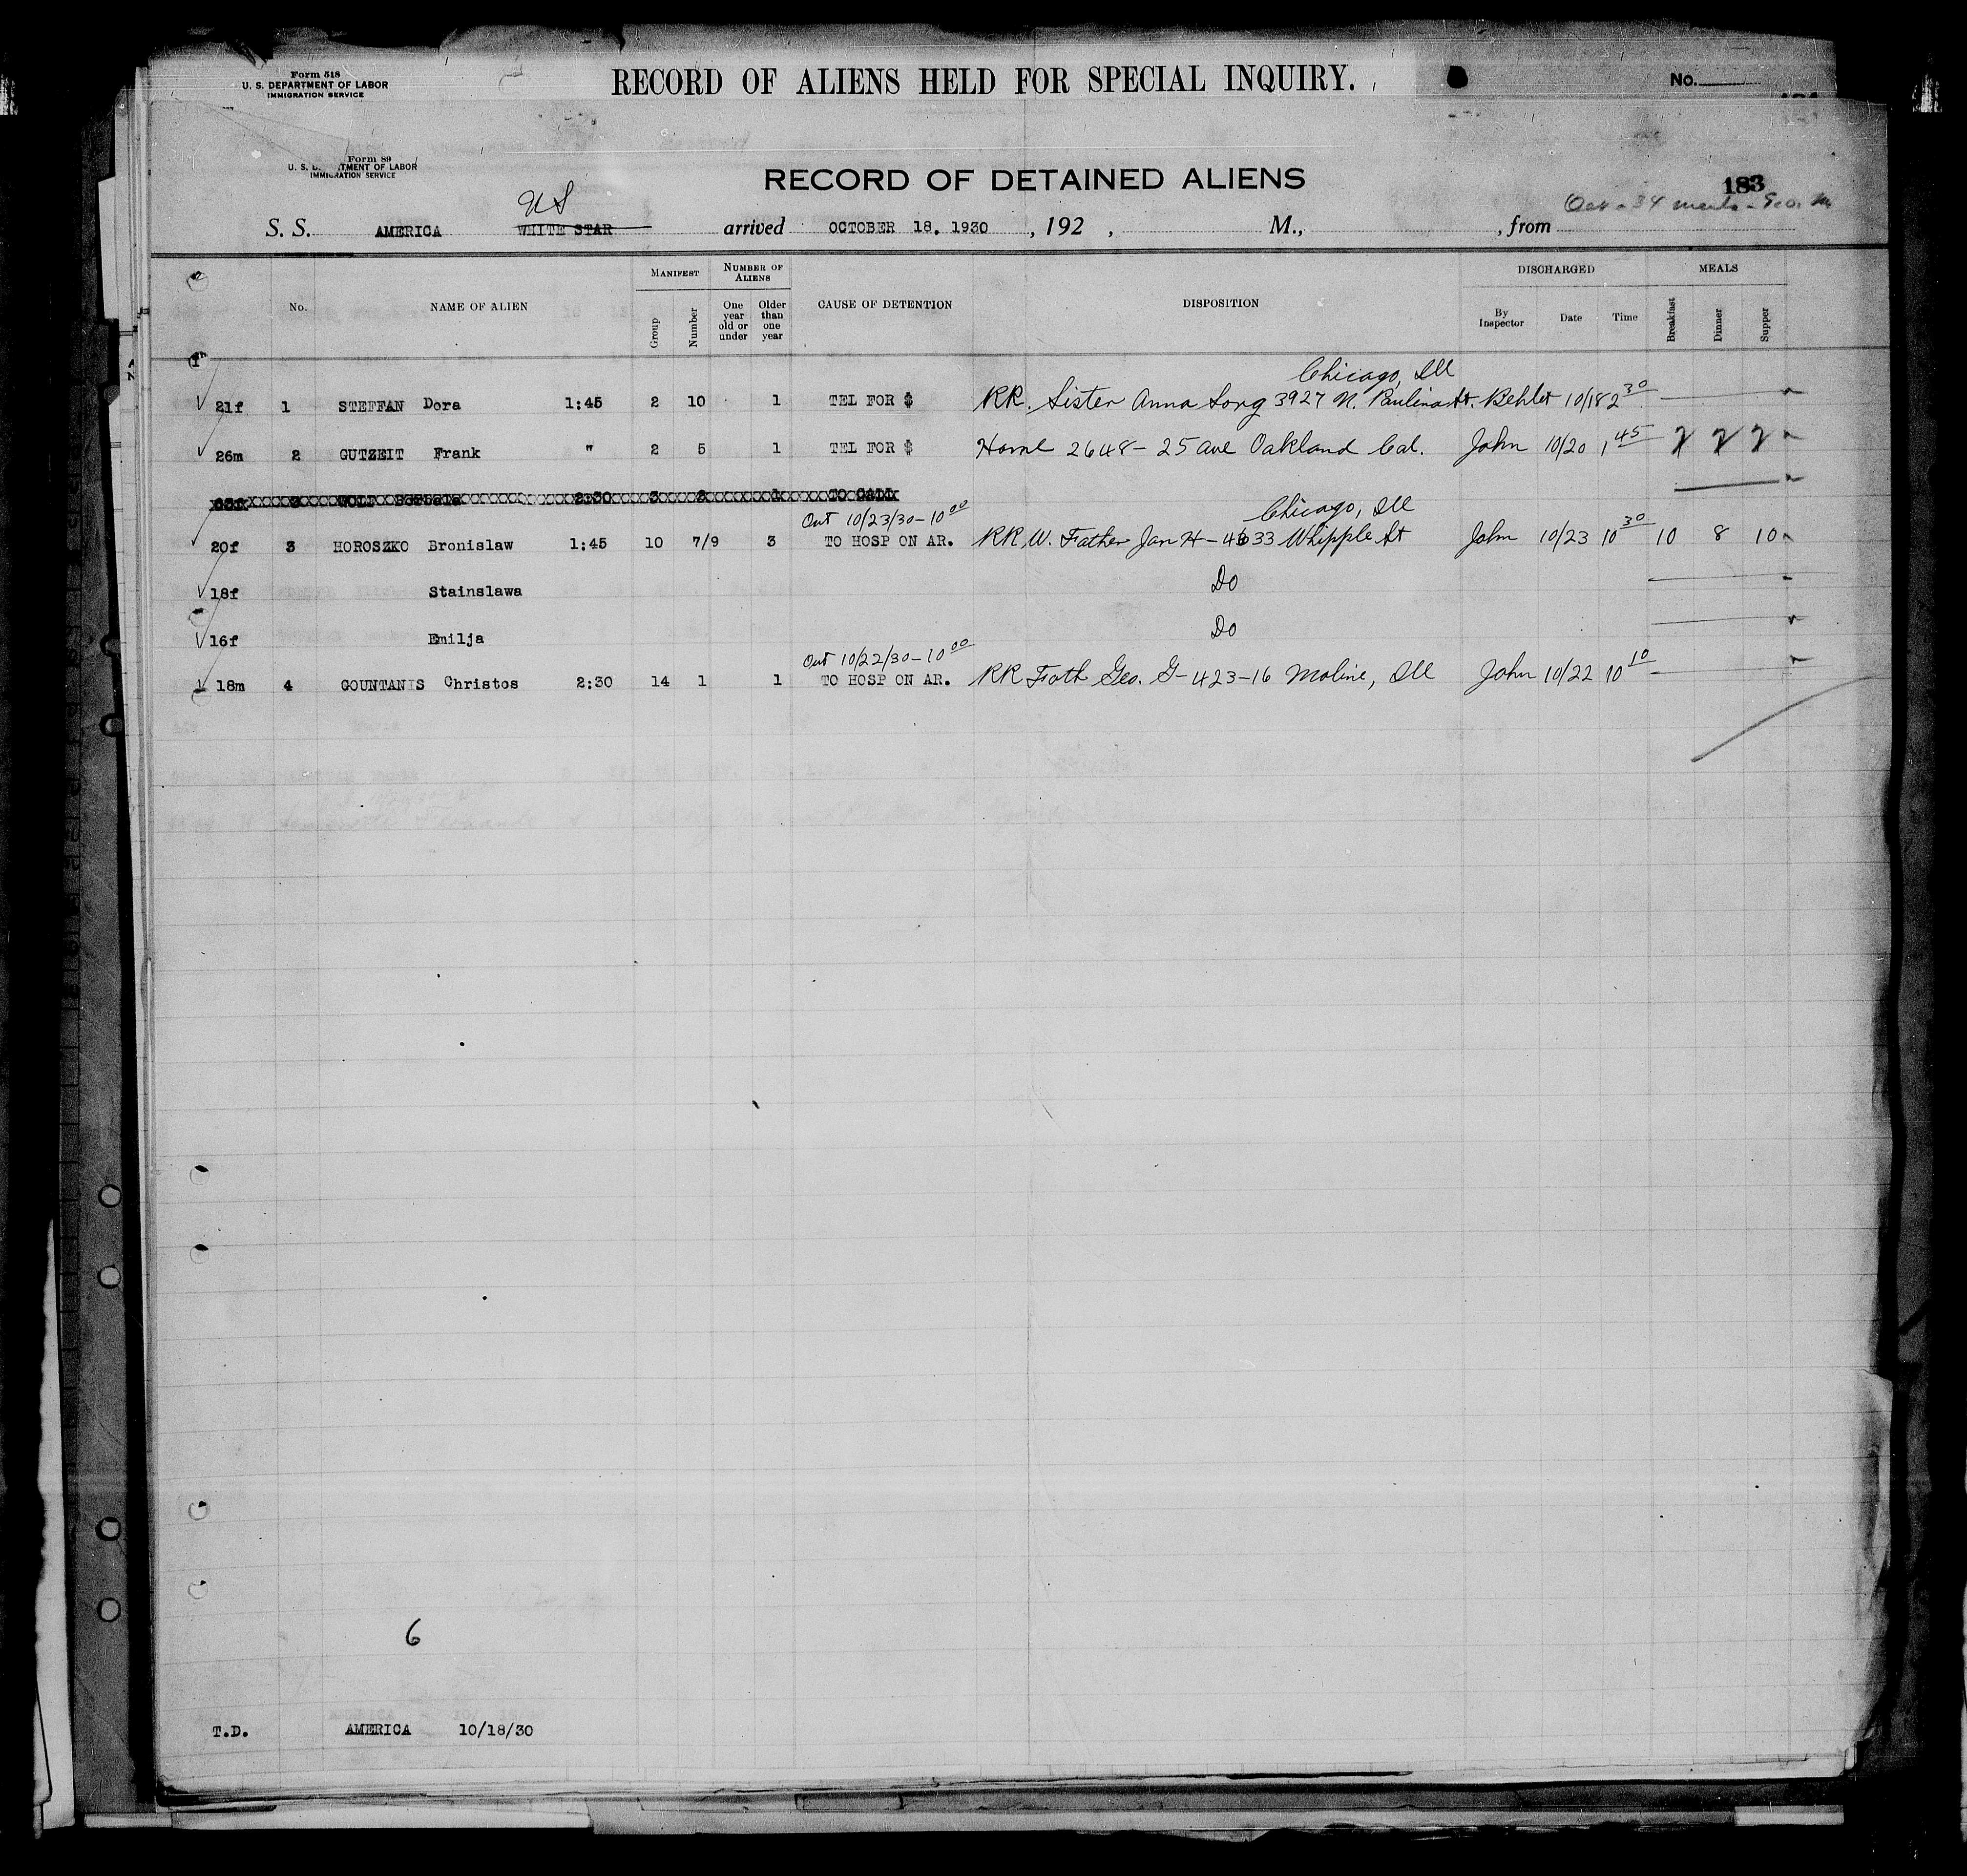 Form 518
U. S. DEPARTMENT OF LABOR
IMMIGRATION SERVICE
RECORD OF ALIENS HELD FOR SPECIAL INQUIRY.
No.
Form 89
U. S. D TMENT OF LABOR
IMMIGRATION SERVICE
RECORD OF DETAINED ALIENS
183
US
S. S. AMERICA WHITE STAR arrived OCTOBER 18, 1930 , 192 , M., , from
No. NAME OF ALIEN MANIFEST Group Number NUMBER OF ALIENS One year old or under Older than one year CAUSE OF DETENTION DISPOSITION DISCHARGED By Inspector Date Time MEALS Breakfast Dinner Supper
Chicago, Ill
21f 1 STEFFAN Dora 1:45 2 10 1 TEL FOR $ RR. Sister Anna Song 3927 N. Paulina St. Behlet 10/18 2 30
26m 2 GUTZEIT Frank " 2 5 1 TEL FOR $ Home 2648-25 ave Oakland Cal. John 10/20 1 45 2 2 2
2:30 3 1 TO CALL
Out 10/23/30-10 00 Chicago, Ill
20f 3 HOROSZKO Bronislaw 1:45 10 7/9 3 TO HOSP ON AR. RR W. Father Jan H- 4633 Whipple St John 10/23 10 30 10 8 10
18f Stainslawa Do
16f Emilja Do
Out 10/22/30-10 00
18m 4 GOUNTANIS Christos 2:30 14 1 1 TO HOSP ON AR. RR Fath Geo. G-423-16 Moline, Ill John 10/22 10 10
6
T.D. AMERICA 10/18/30